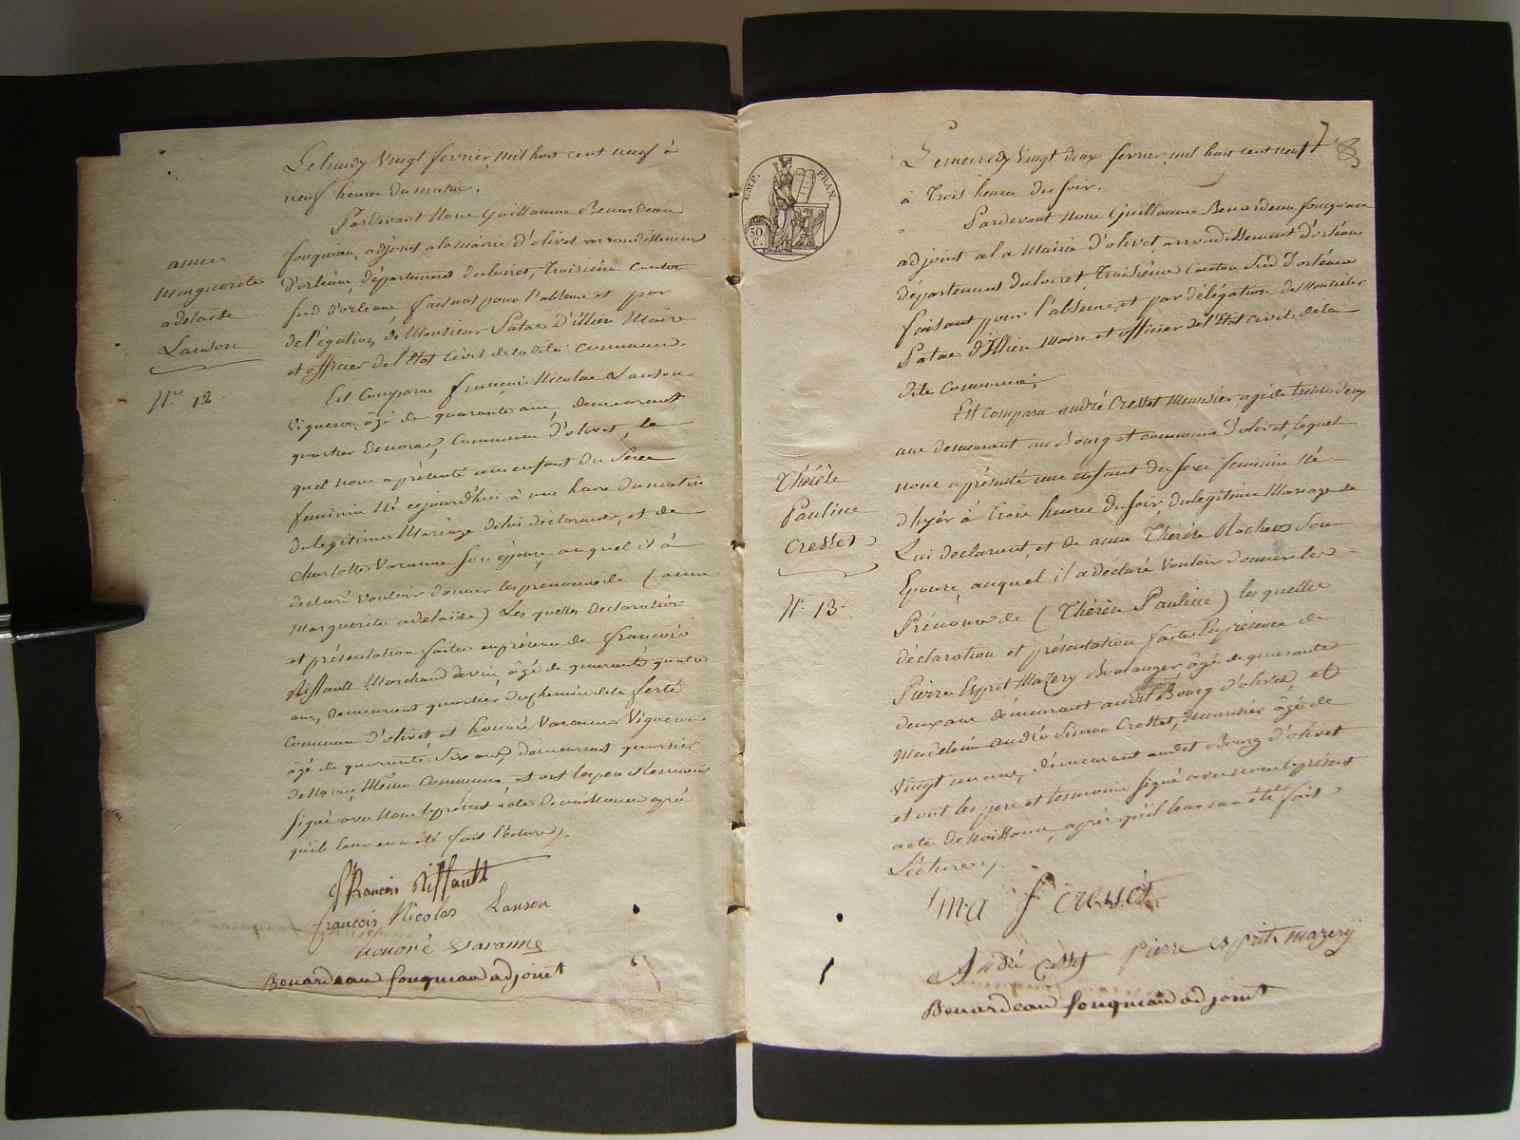 Le lundy Vingt fevrier mil huit cent neuf à
neuf heures du matin.
Pardevant Nous Guillaume Benardeau
fouqueau, adjoint a la mairie d'olivet arrondissement
d'orléans, département du loiret, troisième canton
sud d'orleans, faisant pour l'absence et par
délégation de Monsieur Patas D'illiers Maire
et officier de l'Etat Civil de la dite commune.
Est Comparu françois Nicolas Lanson
vigneron, âgé de quarante ans, demeurant
quartier de commune d'olivet, le
quel nous a présenté une enfant du Sexe
feminin Né cejourd'hui à une heure du matin
du legitime Mariage de lui déclarant, et de
Charlotte Varanne son épouse, auquel il à
declaré vouloir donner les prenoms de (anne
Marguerite adelaide) Les quelles declaration
et présentation faites en présence de françois
Riffault Marchand de vin, âgé de quarante quatre
ans, demeurant quartier du chemin de la ferté
Commune d'olivet et honoré Varanne Vigneron
âgé de quarante six ans, demeurant quartier
même Commune, et ont les père et temoins
signé avec Nous le présent acte de naissance après
qu'il leur en a été fait lecture.
françois Riffault
françois Nicolas Lanson
honoré Varanne
Benardeau fouqueau adjoint
anne
Marguerite
adelaide
Lanson
N.° 12
7
EMP. FRAN.
50.
C.
Le mercredy Vingt deux fevrier mil huit cent neuf
à trois heures du soir.
Pardevant Nous Guillaume Benardeau fouqueau
adjoint a la Mairie d'olivet arrondissement d'orléans
département du loiret, troisième canton Sud d'orléans
faisant pour l'absence, et par délégation de Monsieur
Patas d'Illiers Maire et officier de l'Etat Civil de la
dite Commune;
Est Comparu andré Cresset Menusier agé de trente deux
ans demeurant au Bourg et commune d'olivet, lequel
nous a présenté une enfant du sexe feminin Né
d'hyer à trois heures du soir du legitime Mariage de
Lui déclarant, et de anne Thérèse Rocher Son
Epouse, auquel il a declaré Vouloir donner les
Prénoms de (Thérèse Pauline) les quelles
déclaration et présentation faites En présence de
Pierre Esprit Mazery Boulanger âgé de quarante
deux ans demeurant audit Bourg d'olivet, et
andré Simon Cresset, Menusier âgé de
Vingt un ans, demeurant audit Bourg d'olivet
et ont les pere et temoins signé avec nous le présent
acte de Naissance, après qu'il leur en a été fait
Lecture.
Thérèse
Pauline
Cresset
N.° 13
ma f cresset
André Cresset Pierre esprit mazery
Benardeau fouqueau adjoint